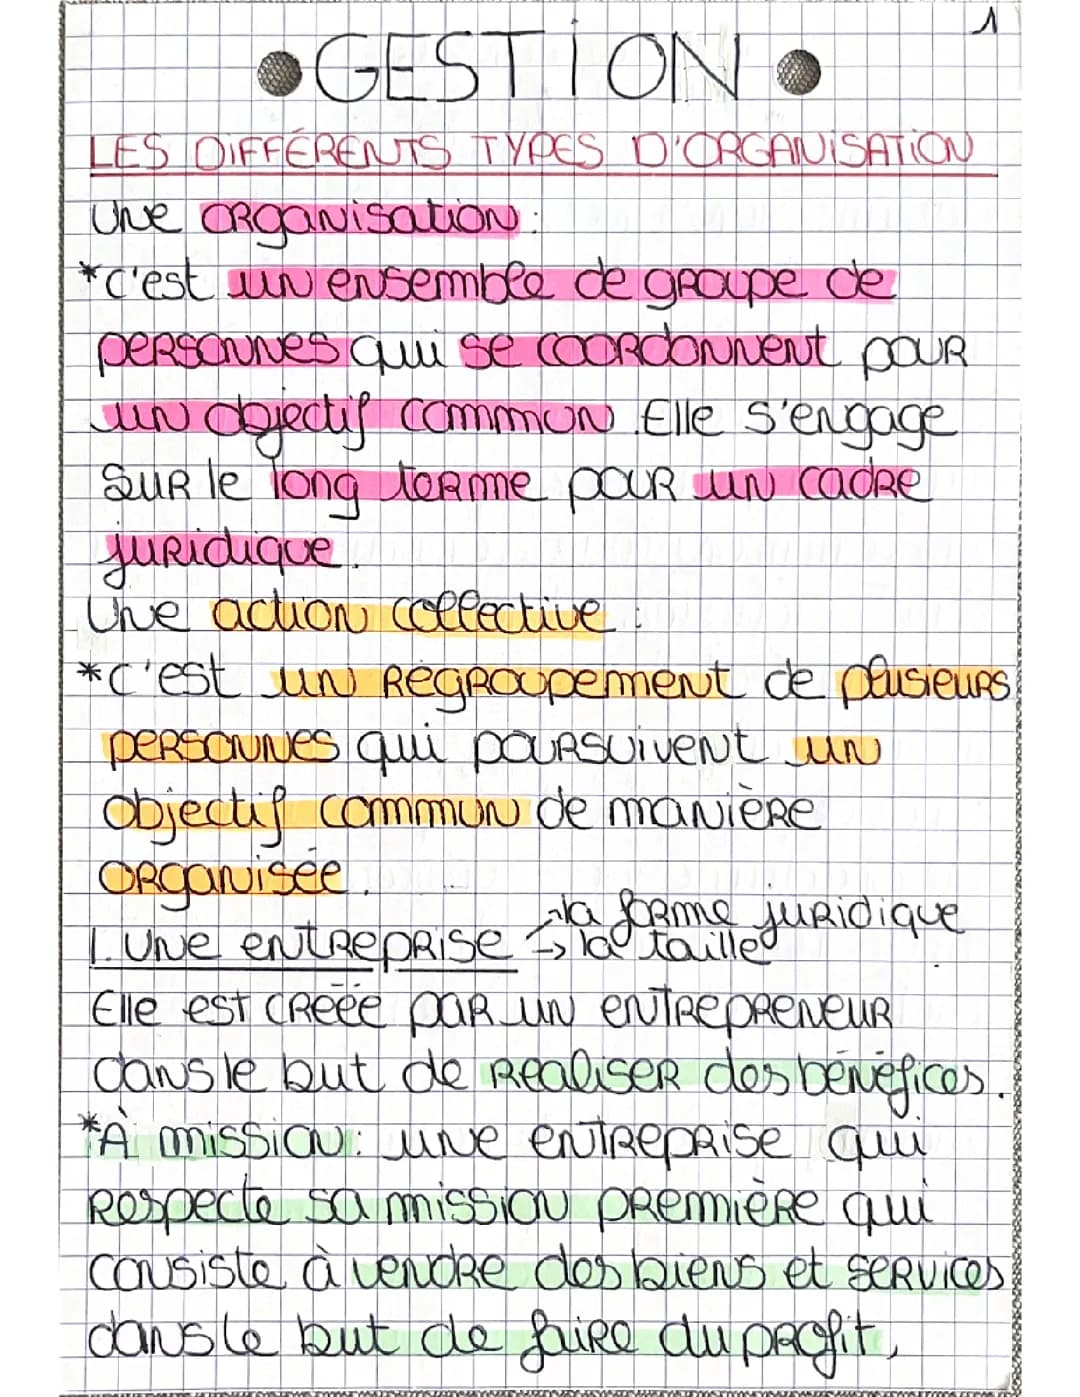 1
GESTION
LES DIFFÉRENTS TYPES D'ORGANISATION
Une organisation :
*c'est un ensemble de groupe de
personnes qui se coordonnent pour
un objectif commun. Elle s'engage
sur le long terme pour un cadre
juridique.
Une action collective :
*c'est un regroupement de plusieurs
personnes qui poursuivent un
objectif commun de manière
organisée.
→ la forme juridique
1. Une entreprise → la taille
Elle est créée par un entrepreneur
dans le but de réaliser des bénéfices.
*À mission : une entreprise qui
respecte sa mission première qui
consiste à vendre des biens et services
dans le but de faire du profit,